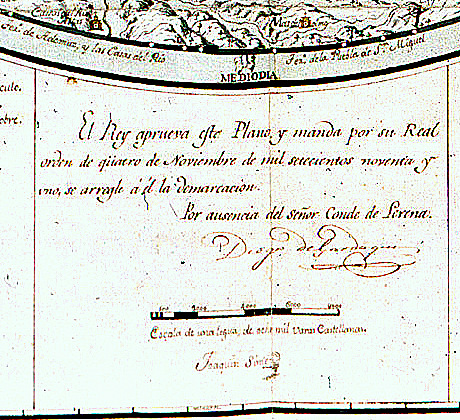 Mediodia
Ten. de la Puebla de Sn. Miguel
Ten. de Ademuz, y las Casas del Rio
El Rey aprueva este Plano, y manda por su Real
orden de quatro de Noviembre de mil setecientos noventa y
uno, se arregle a él la demarcacion.
Por ausencia del señor Conde de Lerena.
Diego de Gardoqui
4000 6000 8000
Escala de una legua, de ocho mil varas Castellanas.
Joaquin